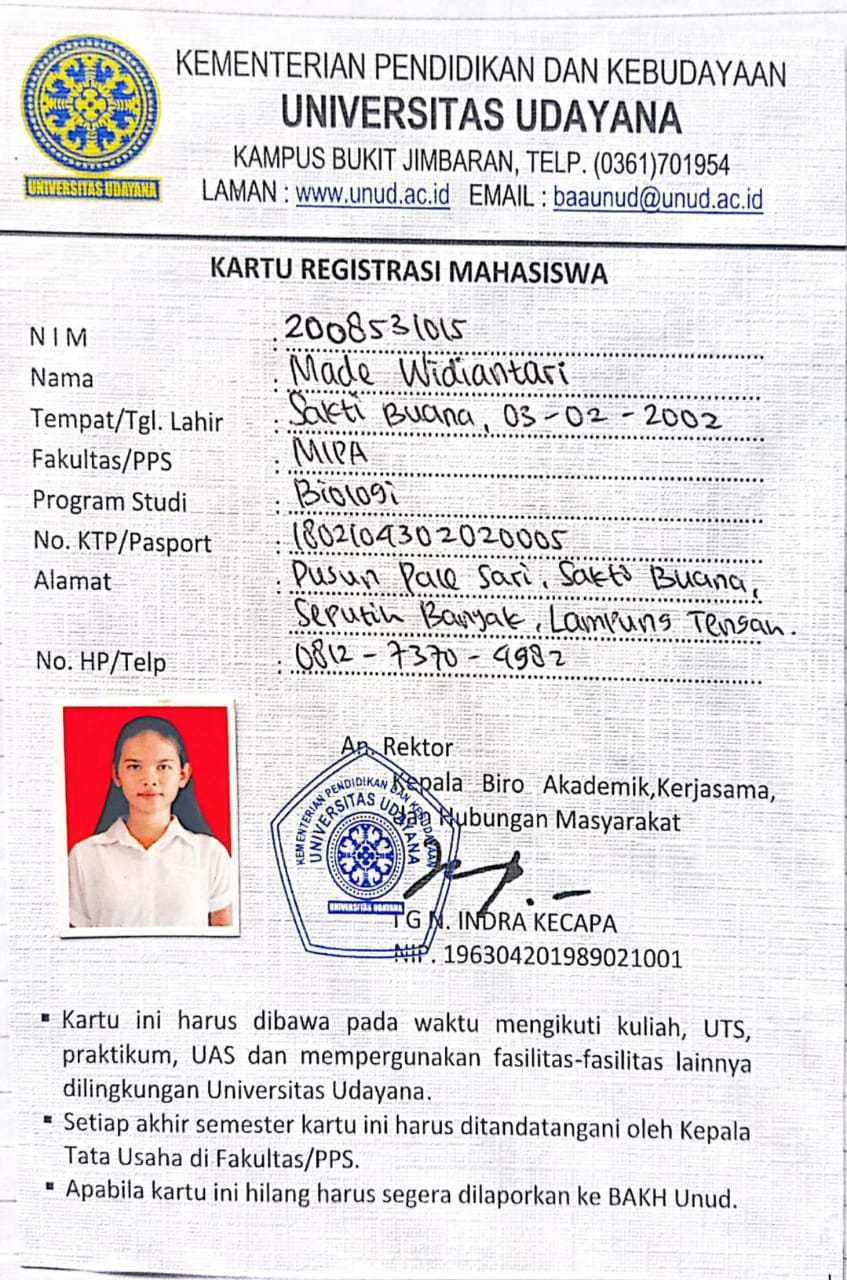 UNIVERSITAS UDAYANA
KEMENTERIAN PENDIDIKAN DAN KEBUDAYAAN
UNIVERSITAS UDAYANA
KAMPUS BUKIT JIMBARAN, TELP. (0361)701954
LAMAN : www.unud.ac.id EMAIL : baaunud@unud.ac.id
KARTU REGISTRASI MAHASISWA
N I M : 2008531015
Nama : Made Widiantari
Tempat/Tgl. Lahir : Sakti Buana, 03-02-2002
Fakultas/PPS : MIPA
Program Studi : Biologi
No. KTP/Pasport : 1802104302020005
Alamat : Dusun Pale Sari, Sakti Buana,
Seputih Banyak, Lampung Tengah.
No. HP/Telp : 0812-7370-4982
An. Rektor
Kepala Biro Akademik,Kerjasama,
dan Hubungan Masyarakat
KEMENTERIAN PENDIDIKAN DAN KEBUDAYAAN
UNIVERSITAS UDAYANA
UNIVERSITAS UDAYANA
I G N. INDRA KECAPA
NIP. 196304201989021001
▪ Kartu ini harus dibawa pada waktu mengikuti kuliah, UTS,
praktikum, UAS dan mempergunakan fasilitas-fasilitas lainnya
dilingkungan Universitas Udayana.
▪ Setiap akhir semester kartu ini harus ditandatangani oleh Kepala
Tata Usaha di Fakultas/PPS.
▪ Apabila kartu ini hilang harus segera dilaporkan ke BAKH Unud.